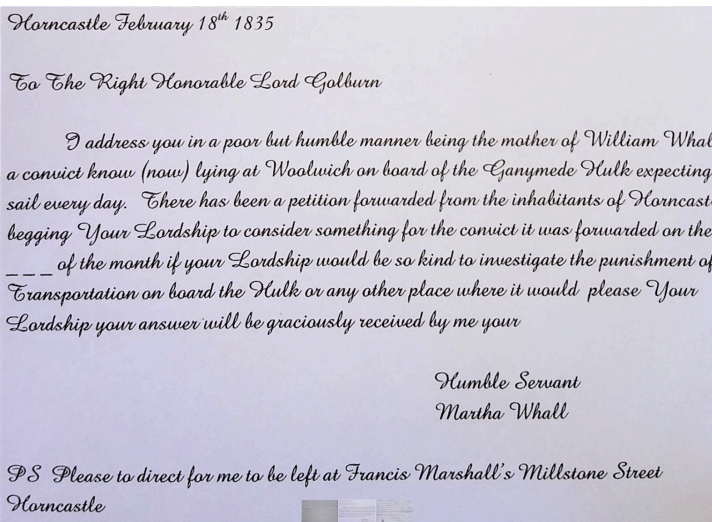 Horncastle February 18th 1835
To The Right Honorable Lord Golburn
I address you in a poor but humble manner being the mother of William Whal
a convict know (now) lying at Woolwich on board of the Ganymede Hulk expecting
sail every day. There has been a petition forwarded from the inhabitants of Horncast
begging Your Lordship to consider something for the convict it was forwarded on the
_ _ _ of the month if your Lordship would be so kind to investigate the punishment of
Transportation on board the Hulk or any other place where it would please Your
Lordship your answer will be graciously received by me your
Humble Servant
Martha Whall
PS Please to direct for me to be left at Francis Marshall's Millstone Street
Horncastle